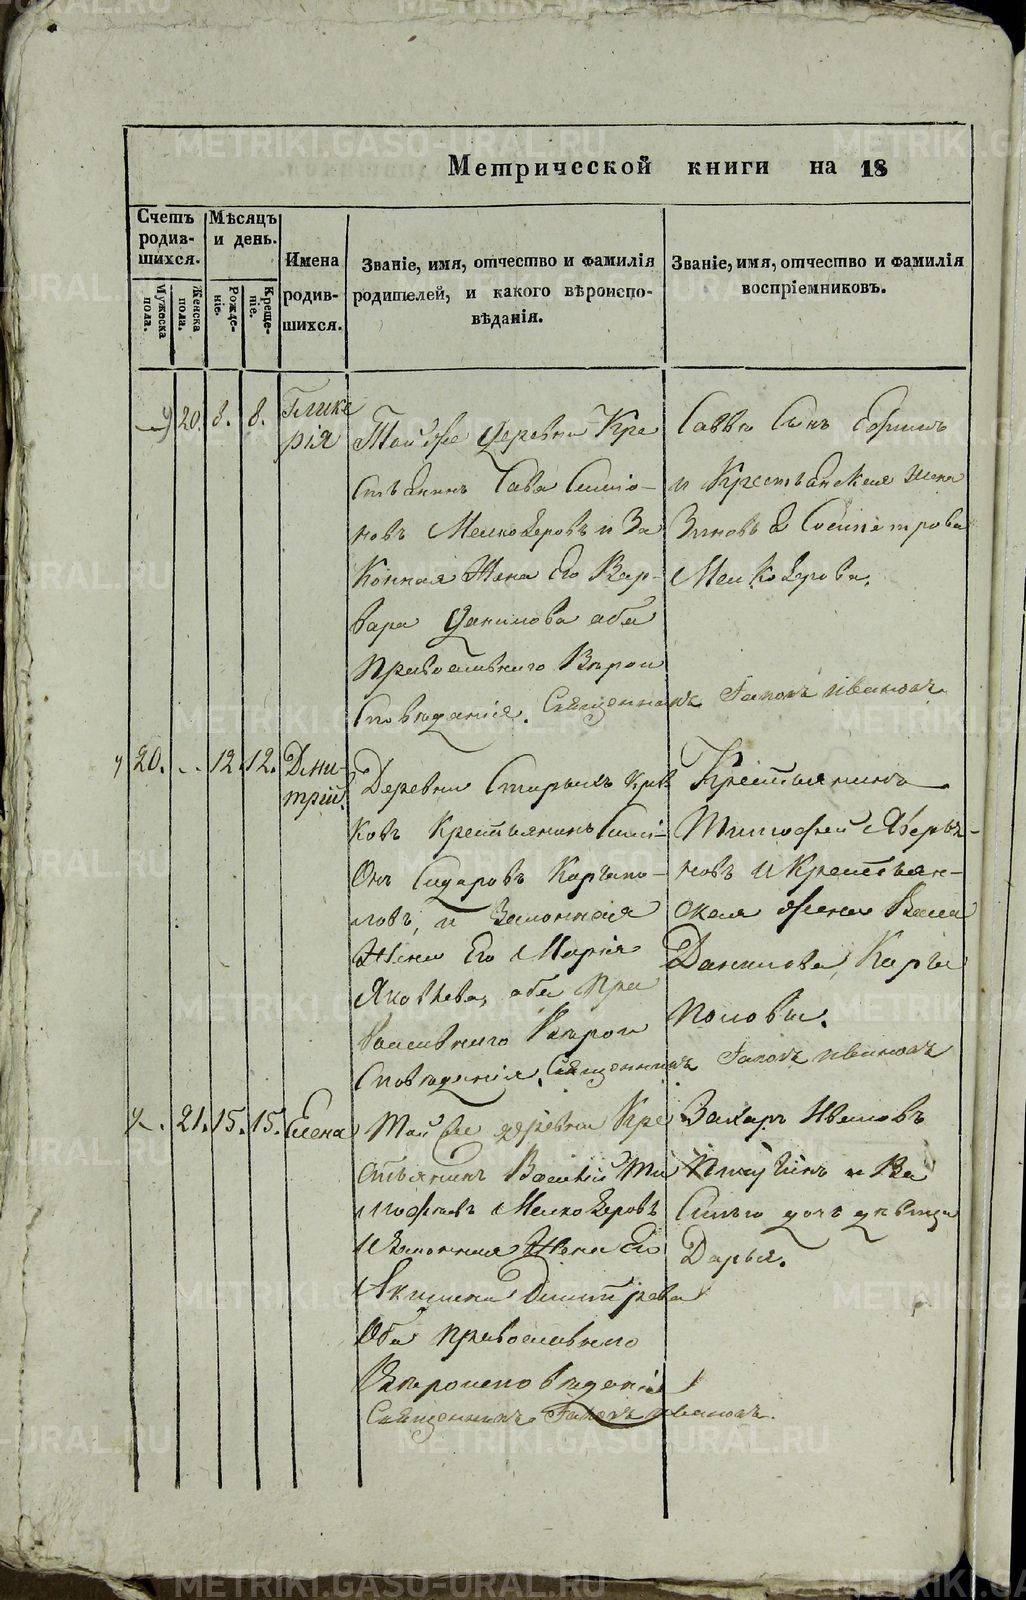 Метрической книги на 18
Счетъ родив-шихся.
Мужеска пола.
Женска пола.
Мѣсяцъ и день.
Рожде-ніе.
Креще-ніе.
Имена родив-шихся.
Званіе, имя, отчество и фамилія
родителей, и какого вѣроиспо-
вѣданія.
Званіе, имя, отчество и фамилія
воспріемниковъ.
20. 8. 8. Глике
рія
Той же Деревни Кре
стьянинъ Сава Симіо-
новъ Мелкозеровъ и За
конная Жена Его Вар-
вара Данилова оба
Православнаго Вѣрои
сповѣданія. Священникъ Іаковъ Ивановъ
Савви Сынъ Ефимъ
и Крестьянская жена
Зиновья
Мелкозерова.
20. 12. 12. Дми-
трій.
Деревни Старыхъ
ковъ Крестьянинъ Симі-
онъ Сидоровъ Карпо-
ловъ, и Законная
Жена Его Марія
Яковлева, оба Пра
вославнаго Вѣрои
сповѣданія. Священникъ Іаковъ Ивановъ
Крестьянинъ
Тимофей Аверья-
новъ и Крестьян-
ская жена
Данилова,
21. 15. 15. Елена
Той же деревни Кре
стьянинъ Василій Ти
мофеевъ Мелкозеровъ
и законная Жена Его
Акилина Димитрева
Оба православнаго
Вѣроисповѣданія
Священникъ Іаковъ Ивановъ.
Захаръ Ивановъ
и Ва
силья дочь дѣвица
Дарья.
METRIKI.GASO-URAL.RU